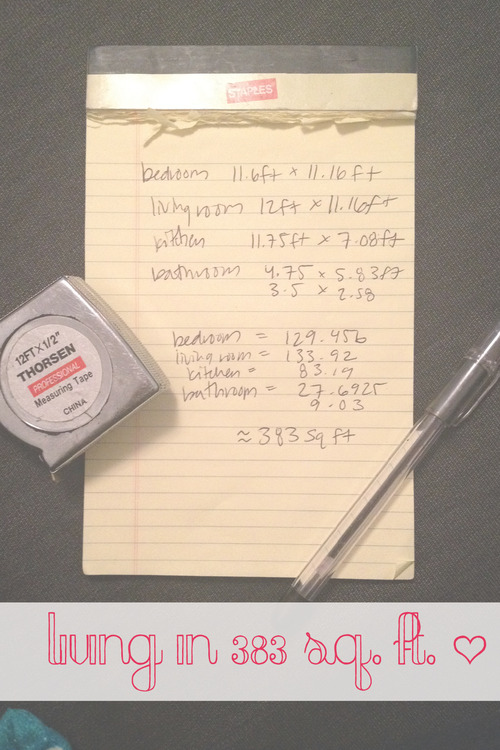 STAPLES
bedroom 11.6ft x 11.16 ft
living room 12ft x 11.16ft
kitchen 11.75ft x 7.08ft
bathroom 4.75 x 5.83ft
3.5 x 2.58
12FT X 1/2"
THORSEN
PROFESSIONAL
Measuring Tape
CHINA
bedroom = 129.456
living room = 133.92
kitchen = 83.19
bathroom = 27.6925
9.03
≈ 383 sq ft
living in 383 sq. ft. ♡